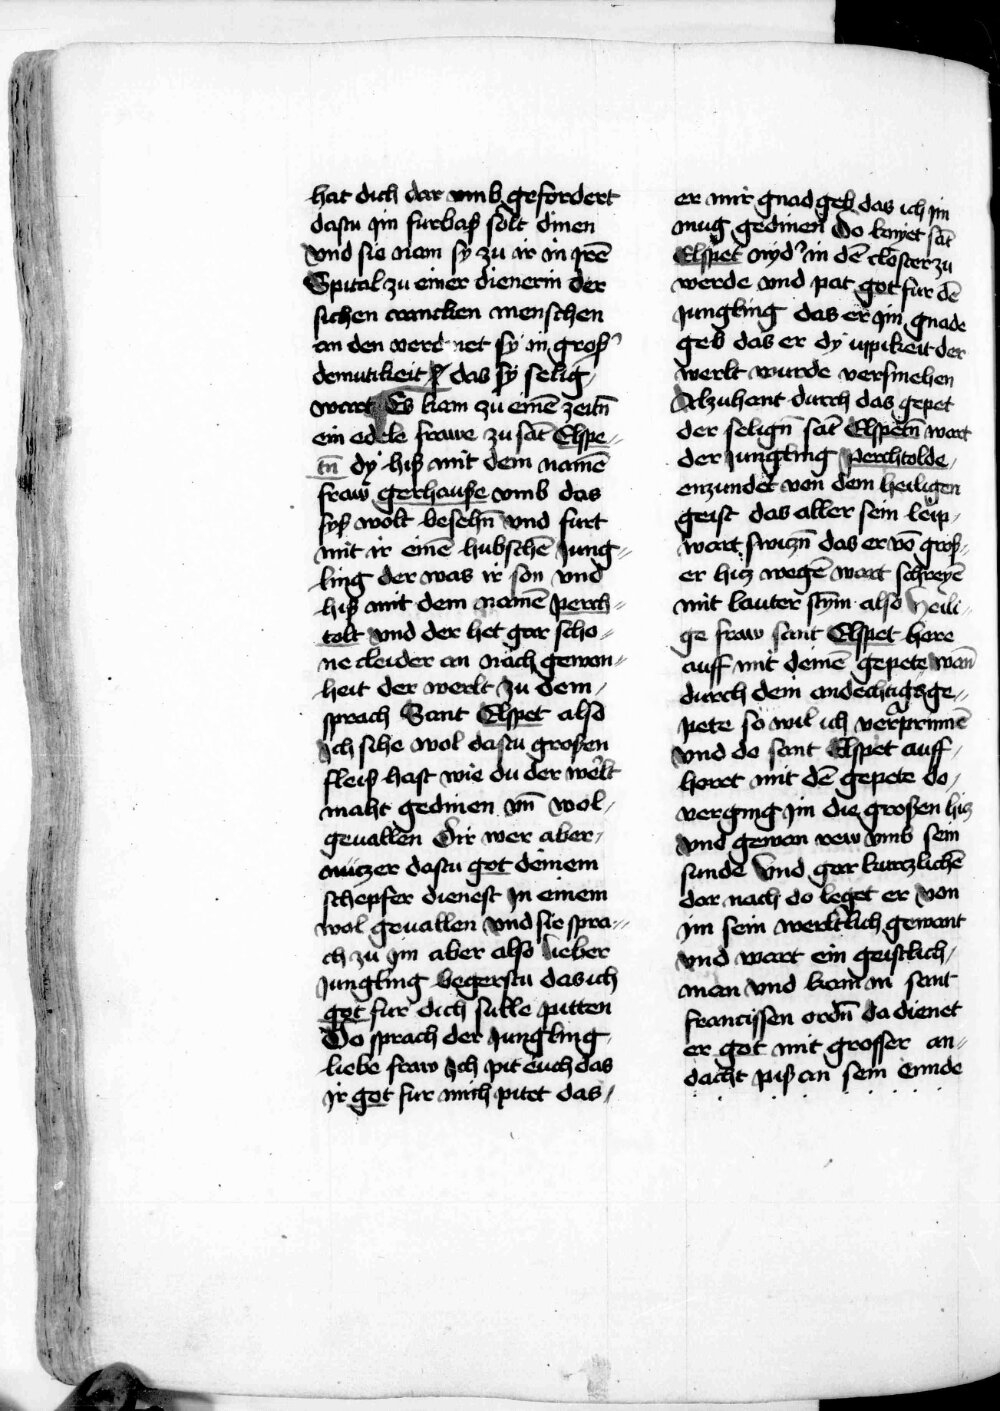 hat dich dar vmb gefordert
dastu jm furbaß solt dinen
vnd sie nam sy zu ir in jrē
Spital zu einer dienerin der
sichen crancken menschen
an den verdinet sy in groß
demutikeit das sy selig
wart Es kam zu einē zeitn̄
ein edele frawe zu sāt Elspe-
tn̄ dy hiß mit dem namē
fraw gerhauße vmb das
syß wolt besehn̄ vnd furt
mit ir einē hubschē jung-
ling der was ir son vnd
hiß mit dem namē perch-
tolt vnd der het gar scho-
ne cleider an nach gewon-
heit der werlt zu dem
sprach Sant Elspet also
Ich sihe wol dastu großen
fleiß hast wie du der welt
maht gedinen vn̄ wol
geuallen Dir wer aber
nutzer dastu got deinem
schepfer dienest In einem
wol geuallen vnd sie spra-
ch zu jm aber also lieber
jungling begerstu das ich
got fur dich sulle pitten
Do sprach der jungling
liebe fraw Ich pit euch das
ir got fur mich pitet das
er mir gnad geb das ich jm
mug gedinen Do knyet sāt
Elspet nyd' in dē closter zu
werde vnd pat got fur dē
jungling das er jm gnade
geb das er dy uppikeit der
werlt wurde versmehen
Alzuhant durch das gepet
der selign̄ sāt Elspetn̄ wart
der jungling perchtolde
enzundet von dem heiligen
geist das aller sein leip
wart swiczn̄ das er vō groß-
er hicz wegē wart schreyē
mit lauter stym also Heili-
ge fraw sant Elspet hore
auff mit deinē gepete wan̄
durch dein andechtigs ge-
pete so wil ich verprinnē
vnd do sant Elspet auff
horet mit dē gepete do
verging jm die großen hicz
vnd gewan rew vmb sein
sunde Vnd gar kurczlichē
dar nach do leget er von
jm sein werltlich gewant
vnd wart ein geistlich
man vnd kam in sant
francissen ordn̄ da dienet
er got mit grosser an-
dacht piß an sein ennde